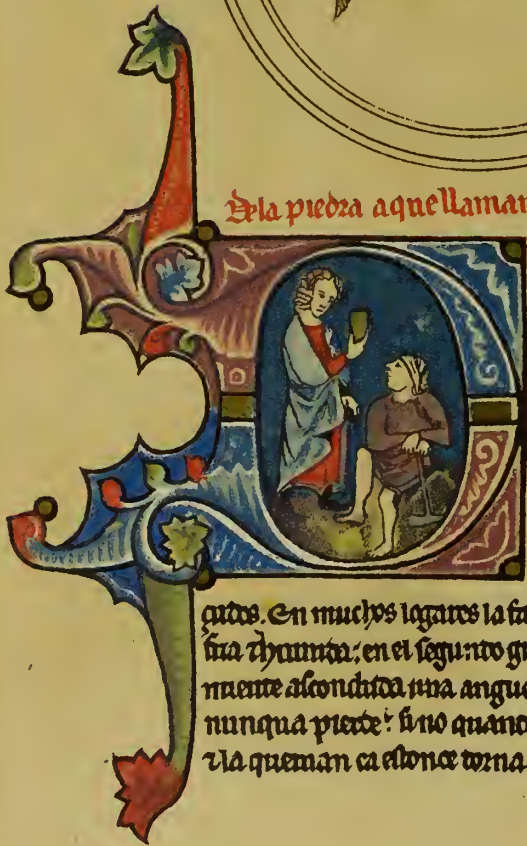 Dela piedra aque llaman
çutos. En muchos logares la fa
fria & humida; en el segundo gr
miente ascondida una angue
nunqua pierde; si no quando
& la queman ca estonce torna